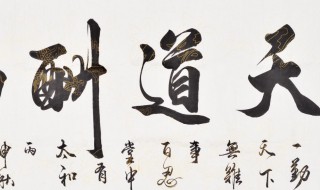 天道酬
一勤
天下
無難
事
百忍
堂中
有
太和
丙
申秋